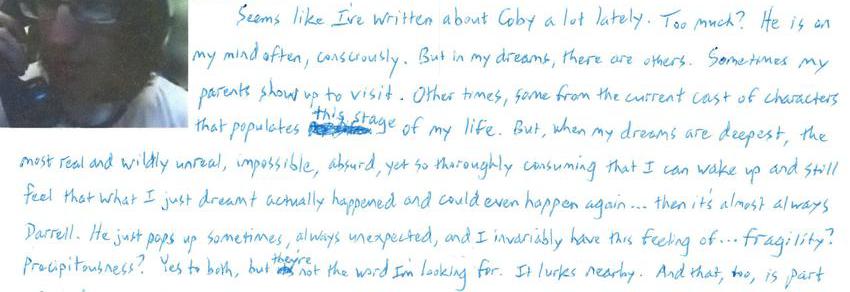 Seems like I've written about Coby a lot lately. Too much? He is on
my mind often, consciously. But in my dreams, there are others. Sometimes my
parents show up to visit. Other times, some from the current cast of characters
that populates this stage of my life. But, when my dreams are deepest, the
most real and wildly unreal, impossible, absurd, yet so thoroughly consuming that I can wake up and still
feel that what I just dreamt actually happened and could even happen again... then it's almost always
Darrell. He just pops up sometimes, always unexpected, and I invariably have this feeling of... fragility?
Precipitousness? Yes to both, but they're not the word I'm looking for. It lurks nearby. And that, too, is part